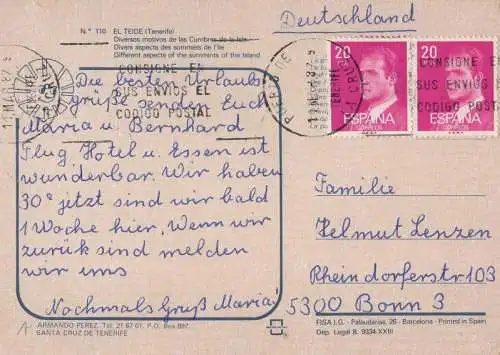 N.º 110 EL TEIDE (Tenerife)
Diversos motivos de las Cumbres de la Isla
Divers aspects des sommets de l'île
Different aspects of the summits of the Island
Deutschland
CONSIGNE EN
SUS ENVIOS EL
CODIGO POSTAL
CONSIGNE EN
SUS ENVIOS
CODIGO POSTAL
20
ESPAÑA
CORREOS
20
ESPAÑA
CORREOS
Die besten Urlaubs
grüße senden Euch
Maria u. Bernhard
Flug Hotel u. Essen ist
wunderbar. Wir haben
30° jetzt sind wir bald
1 Woche hier, Wenn wir
zurück sind melden
wir uns
Nochmals Gruß Maria
Familie
Helmut Lenzen
Rheindorferstr 103
5300 Bonn 3
ARMANDO PEREZ. Tel. 21 67 01. P.O. Box 897.
SANTA CRUZ DE TENERIFE
FISA I.G. - Palaudarias, 26 - Barcelona - Printed in Spain
Dep. Legal B. 9334 XXIII